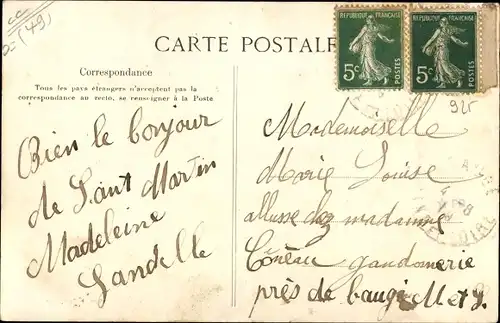 CC
(49)
CARTE POSTALE
RÉPUBLIQUE FRANÇAISE
5c
POSTES
RÉPUBLIQUE FRANÇAISE
5c
POSTES
925
Correspondance
Tous les pays étrangers n'acceptent pas la
correspondance au recto, se renseigner à la Poste
Bien le bonjour
de Saint Martin
Madeleine
Landelle
Mademoiselle
Marie Louise
chez madame
Coneau gandonnerie
près de baugé M et L